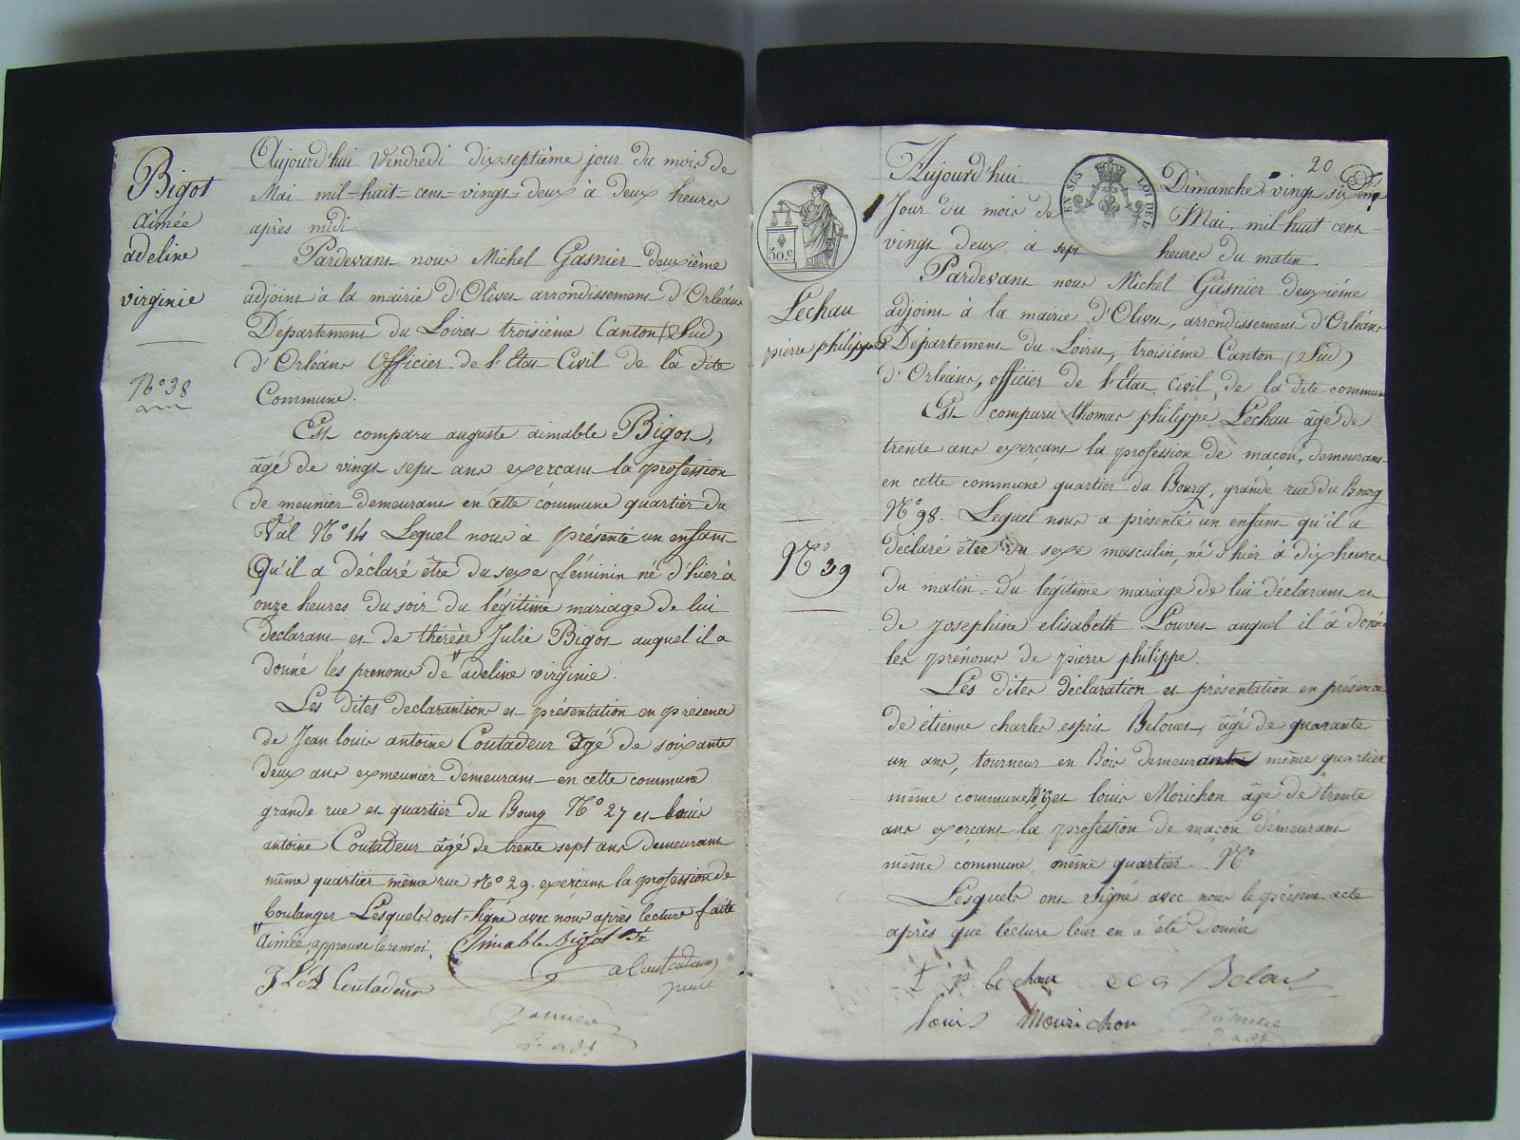 Bigot
aimée
adeline
virginie
N° 38
Aujourd'hui Vendredi dix-septième jour du mois de
Mai mil-huit-cent-vingt-deux à deux heures
après midi
Pardevant nous Michel Gasnier deuxième
adjoint à la mairie d'Olivet arrondissement d'Orléans
Département du Loiret troisième Canton (Sud)
d'Orléans officier de l'Etat Civil de la dite
Commune.
Est comparu auguste aimable Bigot,
âgé de vingt sept ans exerçant la profession
de meunier demeurant en cette commune quartier du
Val N° 14 Lequel nous a présenté un enfant
Qu'il a déclaré être du sexe féminin né d'hier à
onze heures du soir du légitime mariage de lui
declarant et de thérèse Julie Bigot auquel il a
donné les prenoms de adeline virginie.
Les dites declarantions et présentation en présence
de Jean louis antoine Coutadeur âgé de soixante
deux ans exmeunier demeurant en cette commune
grande rue et quartier du Bourg N° 27 et louis
antoine Coutadeur âgé de trente sept ans demeurant
même quartier même rue N° 29. exerçant la profession de
boulanger Lesquels ont signé avec nous après lecture faite
aimée, approuvé le renvoi. Aimable Bigot
J L A Coutadeur
a Coutadeur
Gasnier
20
Aujourd'hui Dimanche vingt six
Jour du mois de Mai, mil huit cent
vingt deux à sept heures du matin
EN SUS
50 c
Lechau
pierre philippe
N° 39
Pardevant nous Michel Gasnier deuxième
adjoint à la mairie d'Olivet, arrondissement d'Orléans
Département du Loiret, troisième Canton (Sud)
d'Orléans, officier de l'Etat civil, de la dite commune
Est comparu thomas philippe Lechau âgé de
trente ans exerçant la profession de maçon, demeurant
en cette commune quartier du Bourg, grande rue du Bourg
N° 98. Lequel nous a présenté un enfant qu'il a
déclaré être du sexe masculin, né d'hier à dix heures
du matin du légitime mariage de lui déclarant et
de Josephine elisabeth Louvet auquel il a donné
les prénoms de pierre philippe.
Les dites déclaration et présentation en présence
de étienne charles esprit Belouet, âgé de quarante
un ans, tourneur en Bois demeurant même quartier
même commune et louis Morichon âgé de trente
ans exerçant la profession de maçon demeurant
même commune même quartier N°
Lesquels ont signé avec nous le présent acte
après que lecture leur en a été donnée
t p lechau
louis Mourichon
Gasnier